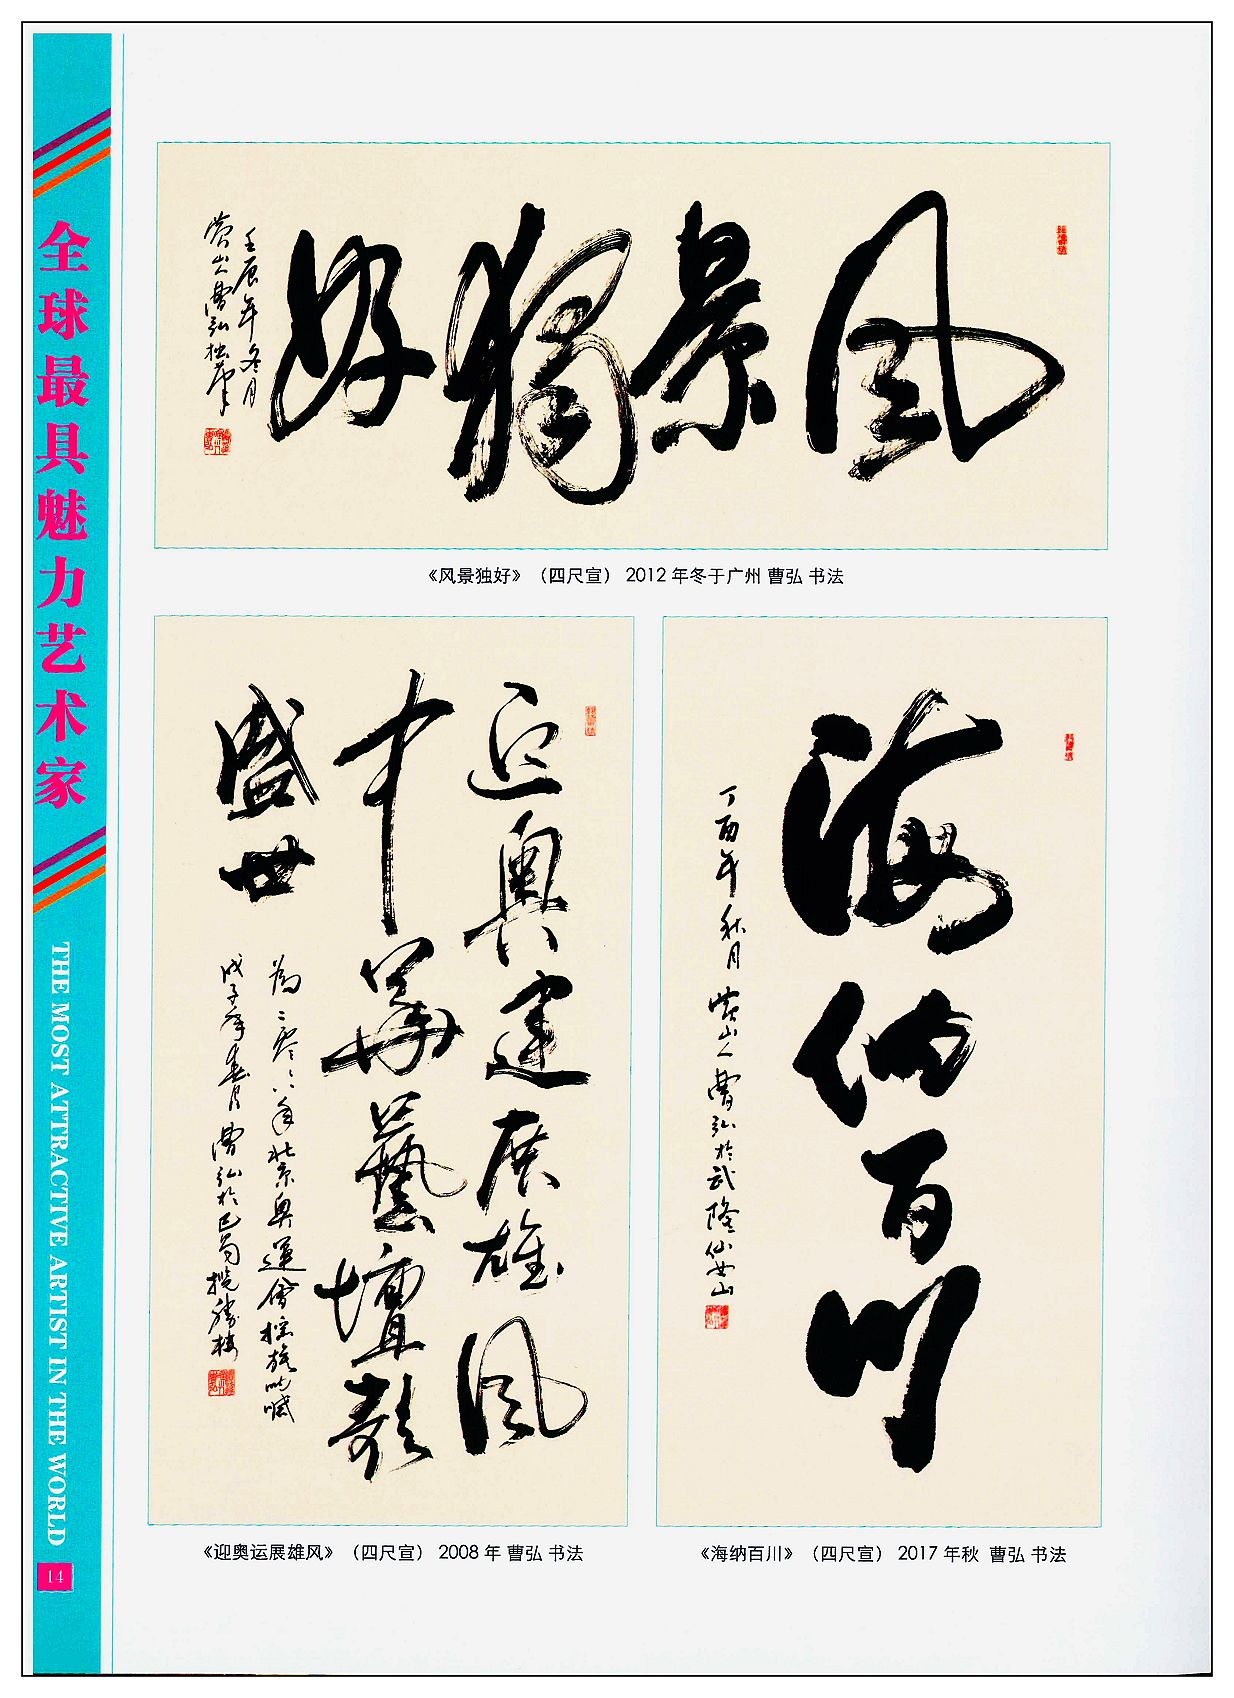 全球最具魅力艺术家
THE MOST ATTRACTIVE ARTIST IN THE WORLD
14
風景獨好
壬辰年冬月
黄山曹弘拙筆
《风景独好》（四尺宣） 2012 年冬于广州 曹弘 书法
迎奥運展雄風
中華藝壇歌
盛世
為二零零八年北京奥運會
戊子年春月曹弘於巴蜀攬勝樓
《迎奥运展雄风》（四尺宣） 2008 年 曹弘 书法
海纳百川
丁酉年秋月黄山人曹弘於武隆仙女山
《海纳百川》（四尺宣） 2017 年秋 曹弘 书法